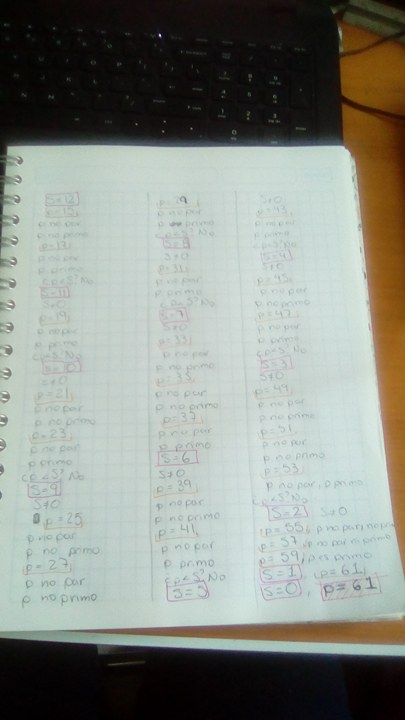 S=12
p=15
p no par
p no primo
p=17
p no par
p primo
¿p<S? No
S=11
S≠0
p=19
p no par
p primo
¿p<S? No
S=10
S≠0
p=21
p no par
p no primo
p=23
p no par
p primo
¿p<S? No
S=9
S≠0
p=25
p no par
p no primo
p=27
p no par
p no primo
p no par
p primo
¿p<S? No
S=8
S≠0
p=31
p no par
p primo
¿p<S? No
S=7
S≠0
p=33
p no par
p no primo
p=35
p no primo
p=37
p no par
p primo
S=6
S≠0
p=39
p no par
p no primo
p=41
p no par
p primo
¿p<S? No
S=5
S≠0
p=43
p no par
p primo
¿p<S? No
S=4
S≠0
p=45
p no par
p no primo
p=47
p no par
p primo
¿p<S? No
S=3
S≠0
p=49
p no par
p no primo
p=51
p no par
p no primo
p=53
p no par, p primo
¿p<S? No
S=2 S≠0
p=55, p no par
p=57, p no par no primo
p=59, p es primo
S=1 p=61
S=0 p=61